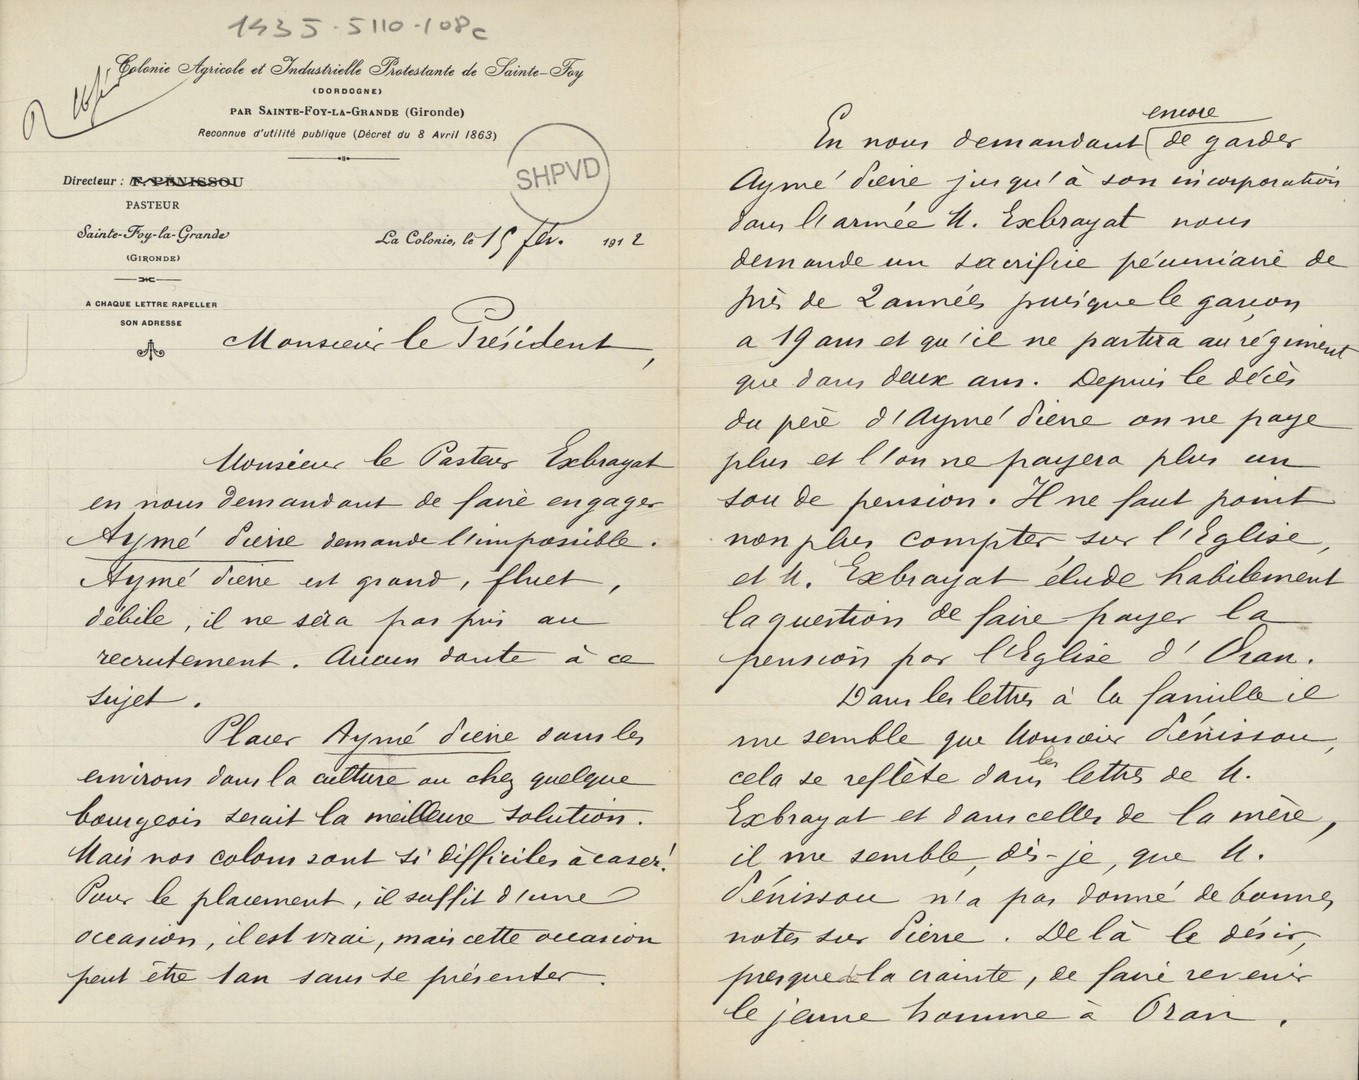 1435-5110-108c
Colonie Agricole et Industrielle Protestante de Sainte-Foy
(DORDOGNE)
PAR SAINTE-FOY-LA-GRANDE (Gironde)
Reconnue d'utilité publique (Décret du 8 Avril 1863)
SHPVD
Directeur : F. PÉNISSOU
PASTEUR
Sainte-Foy-la-Grande
(GIRONDE)
A CHAQUE LETTRE RAPELLER
SON ADRESSE
La Colonie, le 15 fév. 1912
Monsieur le Président,
Monsieur le Pasteur Exbrayat
en nous demandant de faire engager
Aymé Pierre demande l'impossible.
Aymé Pierre est grand, fluet,
débile, il ne sera pas pris au
recrutement. Aucun doute à ce
sujet.
Placer Aymé Pierre dans les
environs dans la culture ou chez quelque
bourgeois serait la meilleure solution.
Mais nos colons sont si difficiles à caser!
Pour le placement, il suffit d'une
occasion, il est vrai, mais cette occasion
peut être 1 an sans se présenter.
En nous demandant encore de garder
Aymé Pierre jusqu'à son incorporation
dans l'armée M. Exbrayat nous
demande un sacrifice pécuniaire de
près de 2 années puisque le garçon
a 19 ans et qu'il ne partira au régiment
que dans deux ans. Depuis le décès
du père d'Aymé Pierre on ne paye
plus et l'on ne payera plus un
sou de pension. Il ne faut point
non plus compter sur l'Eglise,
et M. Exbrayat élude habilement
la question de faire payer la
pension par l'Eglise d'Oran.
Dans les lettres à la famille il
me semble que Monsieur Pénissou,
cela se reflète dans les lettres de M.
Exbrayat et dans celles de la mère,
il me semble, dis-je, que M.
Pénissou n'a pas donné de bonnes
notes sur Pierre. De là le désir,
presque la crainte, de faire revenir
le jeune homme à Oran.